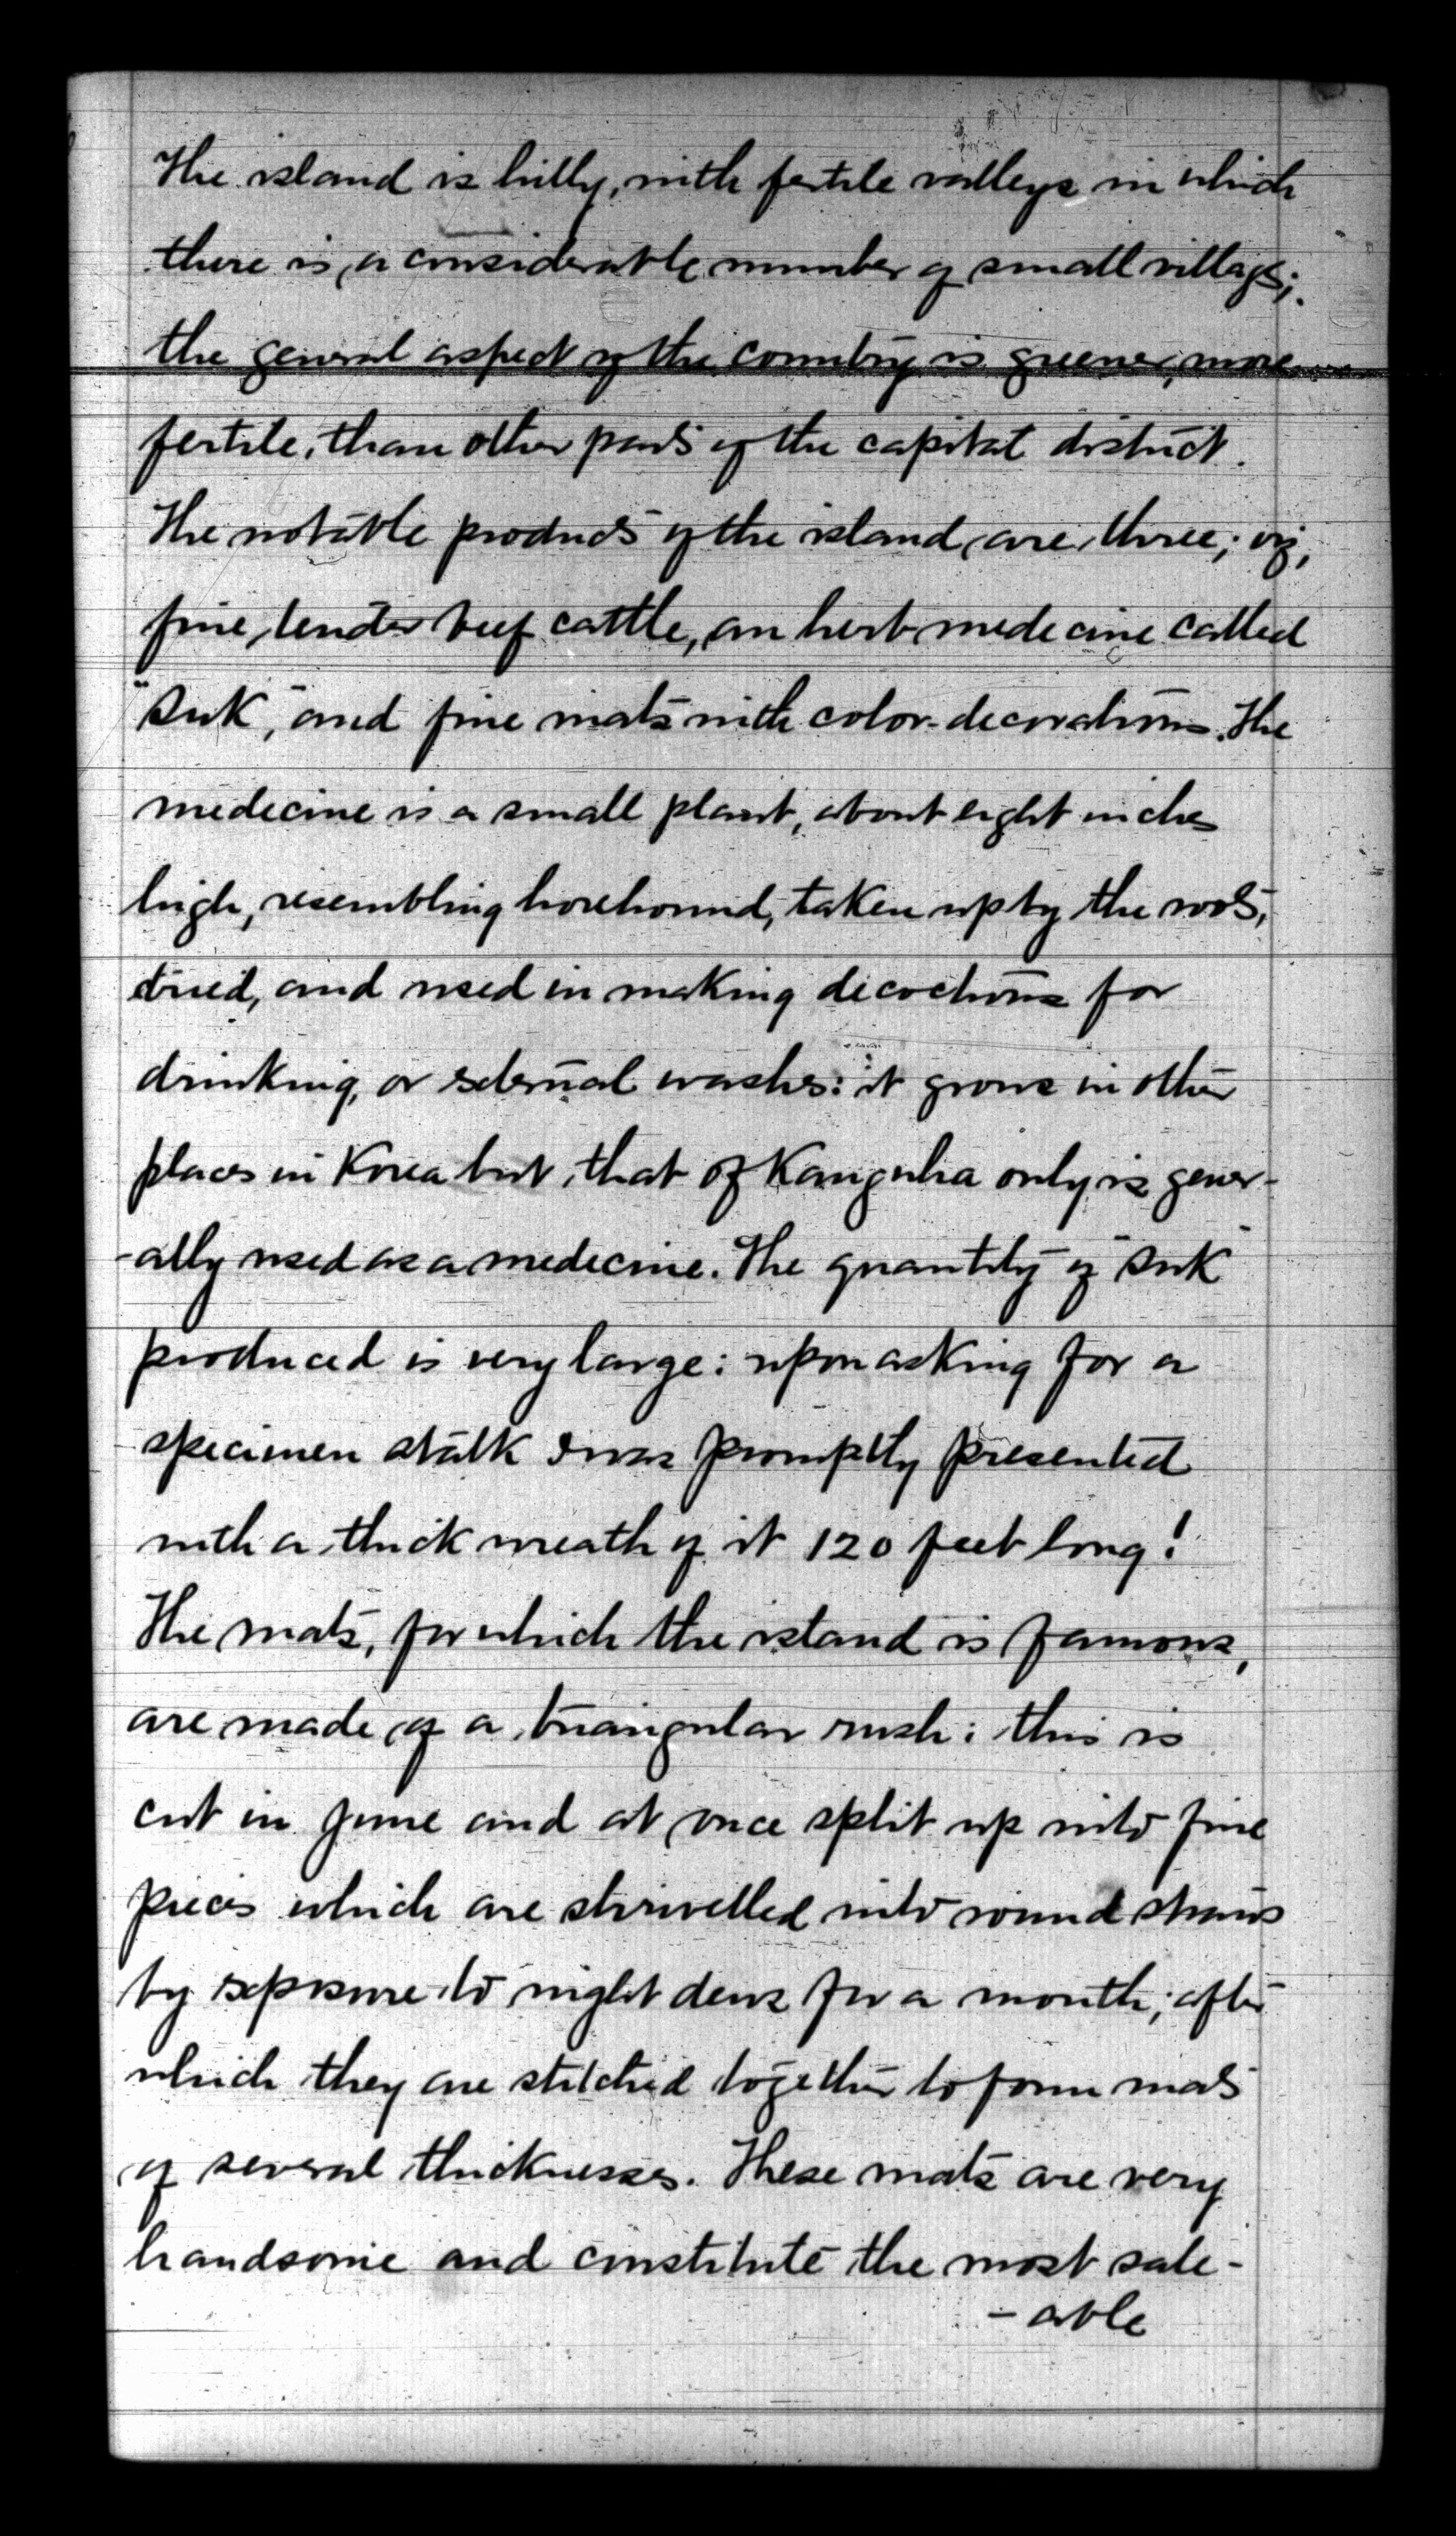 The island is hilly, with fertile valleys in which
there is a considerable number of small villages;
the general aspect of the country is greener, more
fertile, than other parts of the capital district.
The notable products of the island are three; viz,
fine, tender beef cattle, an herb-medecine called
"suk", and fine mats with color-decorations. The
medecine is a small plant, about eight inches
high, resembling horehound, taken up by the roots,
dried, and used in making decoctions for
drinking, or external washes: it grows in other
places in Korea but that of Kangwha only is gener-
-ally used as a medecine. The quantity of "suk"
produced is very large: upon asking for a
specimen stalk I was promptly presented
with a thick wreath of it 120 feet long!
The mats, for which the island is famous,
are made of a triangular rush: this is
cut in June and at once split up into fine
pieces which are shrivelled into round straws
by exposure to night dews for a month; after
which they are stitched together to form mats
of several thicknesses. These mats are very
handsome and constitute the most sale-
-able